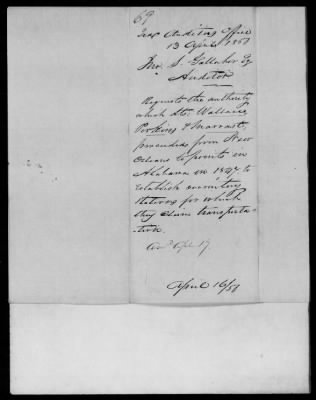 69
Auditors Office
13 April 1851
Jno. S. Gallaher Esq
Auditor
Requests the authority
which Lts: Wallace,
Perkins & Marrast,
proceeded from New
Orleans to points in
Alabama in 1847 to
establish recruiting
stations for which
they claim transporta-
tion.
Apl. 17
April 16/51